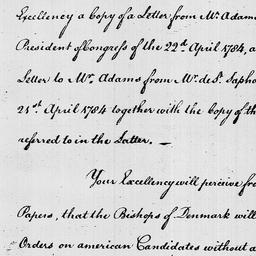 Excellency a copy of a Letter from Mr. Adams
President of Congress of the 22d. April 1784, a
Letter to Mr. Adams from Mr. de St. Sapho
21st. April 1784 together with the copy of th
referred to in the Latter. —
Your Excellency will perceive fro
Papers, that the Bishops of Denmark will
Orders on american Candidates without a